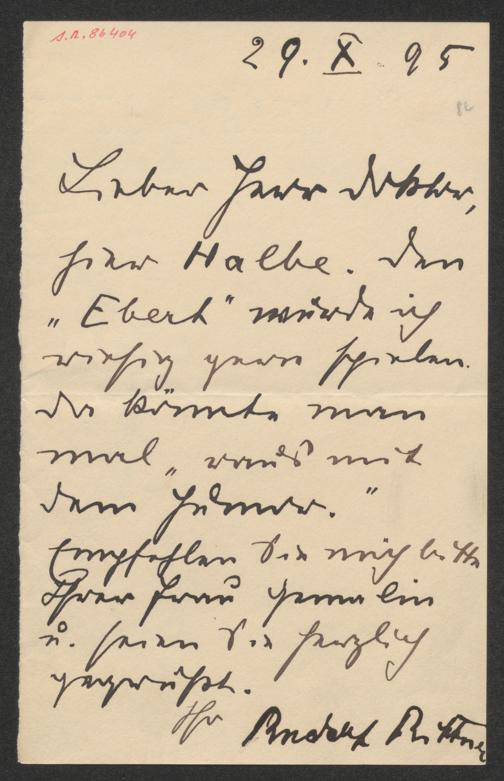 J.N. 86404
29. X. 95
Lieber Herr Doktor,
hier Halbe. Den
„Ebert" würde ich
riesig gern spielen.
Da könnte man
mal „raus mit
dem Humor."
Empfehlen Sie mich bitte
Ihrer Frau Gemalin
u. seien Sie herzlich
gegrüßt.
Ihr Rudolf Rittner